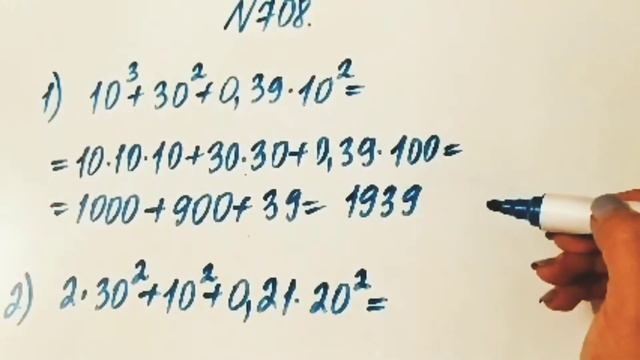 N708.
1) 10³+30²+0,39·10²=
=10·10·10+30·30+0,39·100=
=1000+900+39=1939
2) 2·30²+10²+0,21·20²=